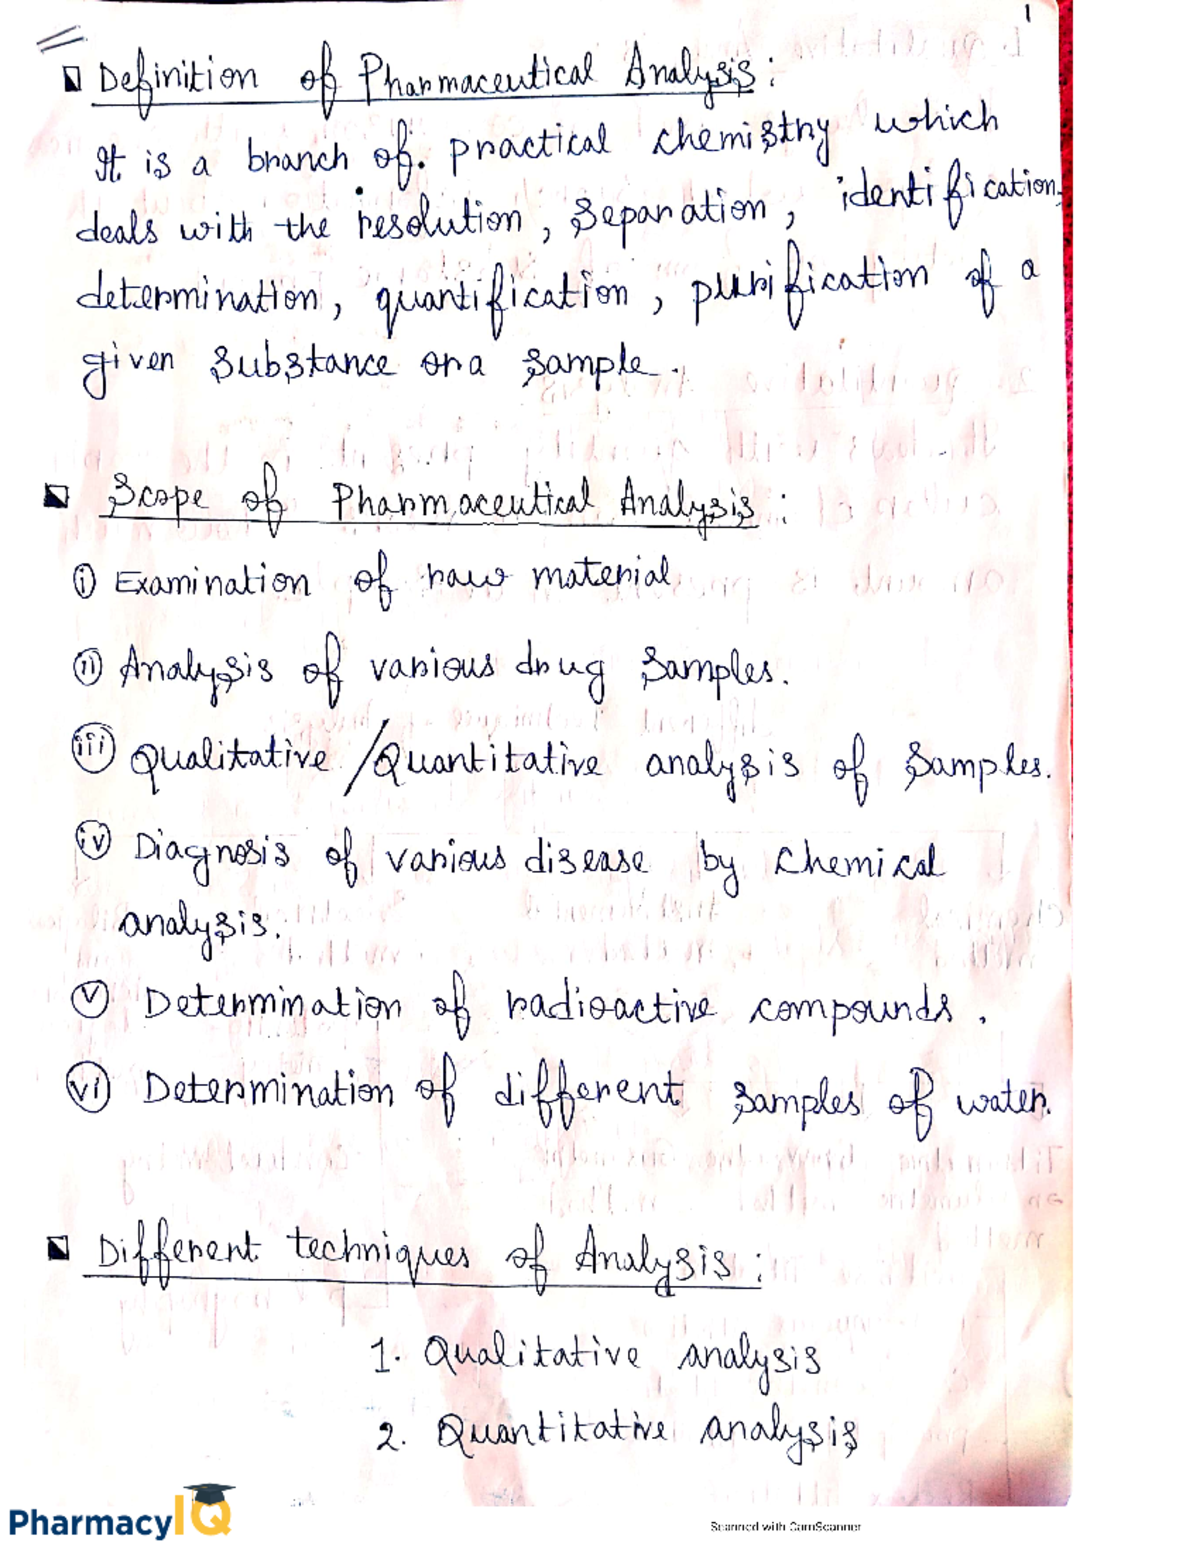 1
Definition of Pharmaceutical Analysis :
It is a branch of. practical chemistry which
deals with the resolution, separation, identification,
determination, quantification, purification of a
given substance or a sample.
Scope of Pharmaceutical Analysis :
(i) Examination of raw material
(ii) Analysis of various drug samples.
(iii) Qualitative / Quantitative analysis of samples.
(iv) Diagnosis of various disease by chemical
analysis.
(v) Determination of radioactive compounds.
(vi) Determination of different samples of water.
Different techniques of Analysis :
1. Qualitative analysis
2. Quantitative analysis
PharmacyIQ
Scanned with CamScanner